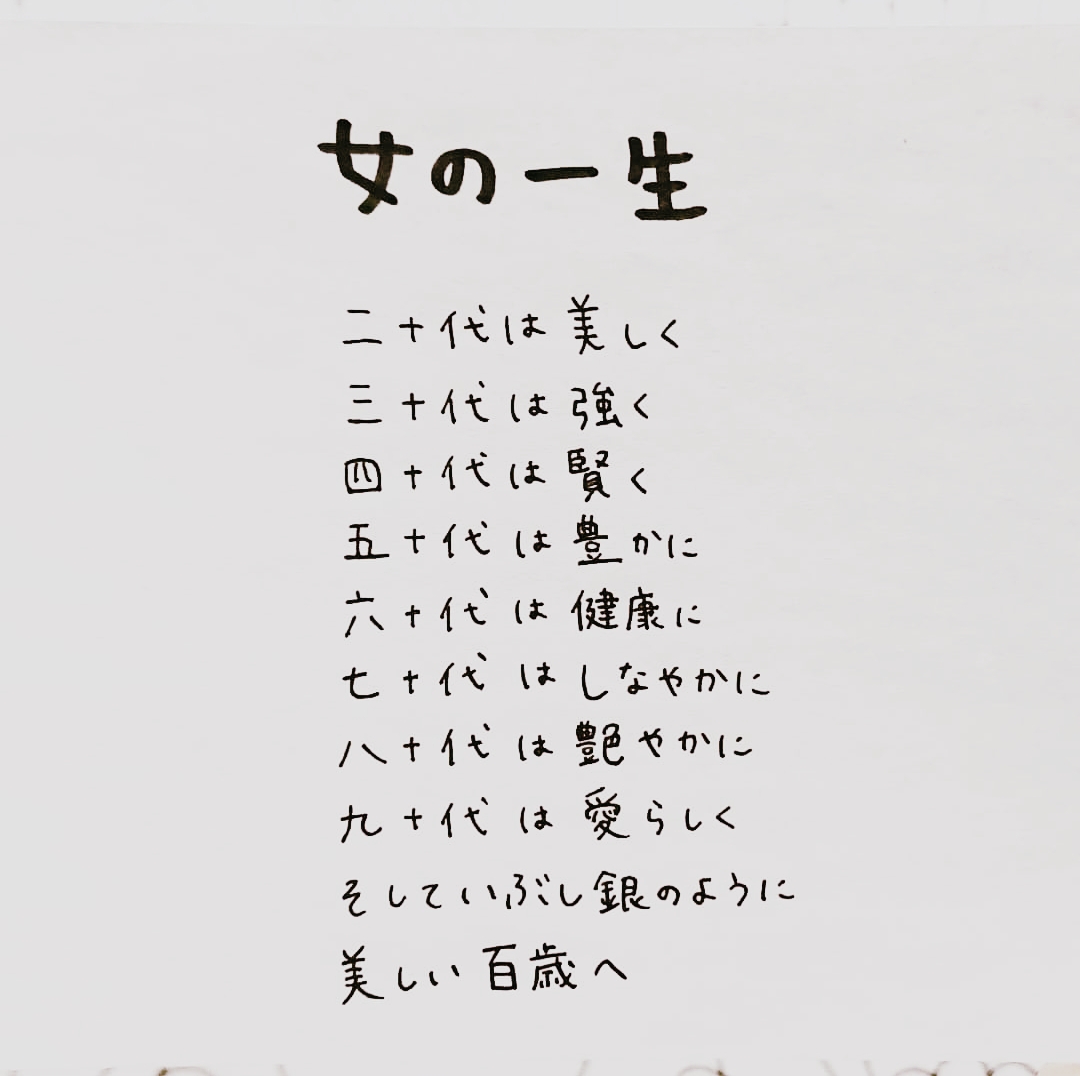 女の一生
二十代は美しく
三十代は強く
四十代は賢く
五十代は豊かに
六十代は健康に
七十代はしなやかに
八十代は艶やかに
九十代は愛らしく
そしていぶし銀のように
美しい百歳へ